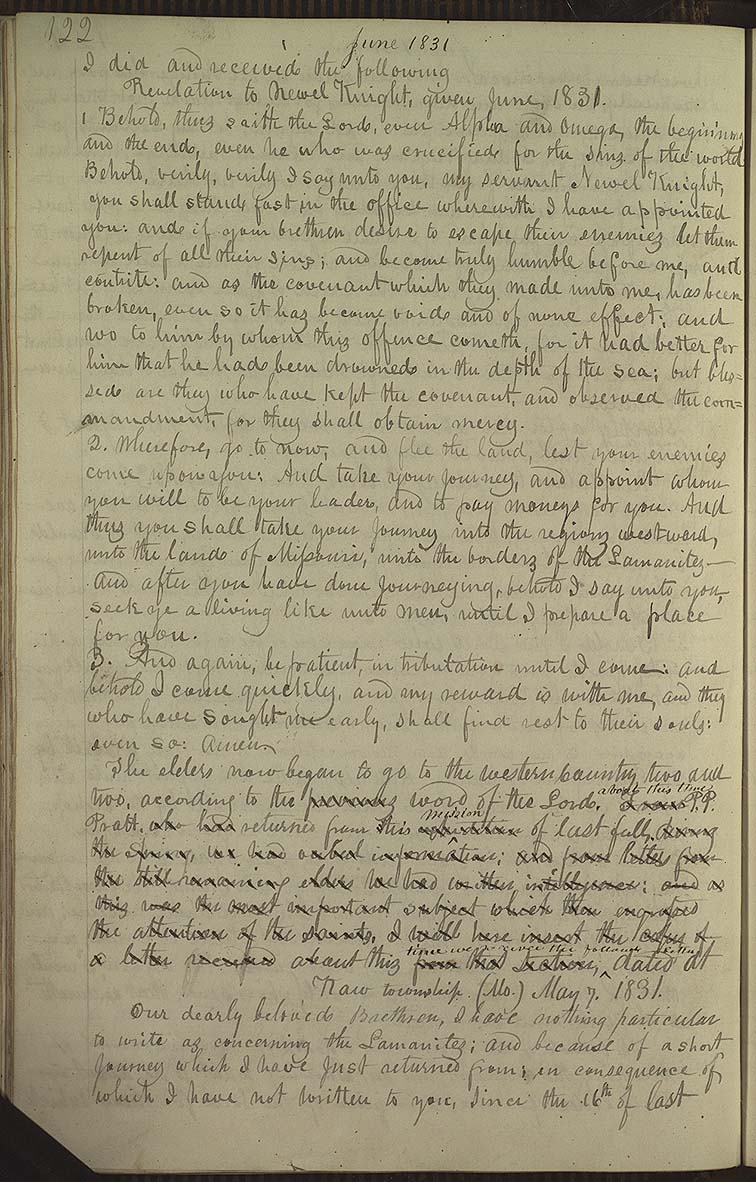 122
June 1831
I did and received the following
Revelation to Newel Knight, given June, 1831.
1 Behold, thus saith the Lord, even Alpha and Omega, the beginning
and the end, even he who was crucified for the sins of the world
Behold, verily, verily I say unto you, my servant Newel Knight,
you shall stand fast in the office wherewith I have appointed
you: and if your brethren desire to escape their enemies let them
repent of all their sins; and become truly humble before me, and
contrite: and as the covenant which they made unto me, has been
broken, even so it has become void and of none effect; and
wo to him by whom this offence cometh, for it had better for
him that he had been drowned in the depth of the sea; but bles=
sed are they who have kept the covenant, and observed the com=
mandment, for they shall obtain mercy.
2. Wherefore, go to now, and flee the land, lest your enemies
come upon you: And take your journey, and appoint whom
you will to be your leader, and to pay moneys for you. And
thus you shall take your journey into the regions westward,
unto the land of Missouri, unto the borders of the Lamanites—
And after you have done journeying, behold I say unto you,
seek ye a living like unto men, until I prepare a place
for you.
3. And again, be patient, in tribulation until I come: and
behold I come quickly, and my reward is with me, and they
who have sought me early, shall find rest to their souls:
even so: Amen.
The elders now began to go to the western country, two and
two, according to the previous word of the Lord. about this time P.P.
Pratt. who had returned from his mission expedition of last fall, during
the Spring, we had verbal information; and from letters from
the still remaining elders we had written intelligence: and as
this was the most important subject which then engrossed
the attention of the saints, I will here insert the copy of
a letter received about this time from that Section, dated at
Kaw township. (Mo.) May 7. 1831.
Our dearly beloved Brethren, I have nothing particular
to write as concerning the Lamanites; and because of a short
journey which I have just returned from; in consequence of
which I have not written to you, since the 16th of last